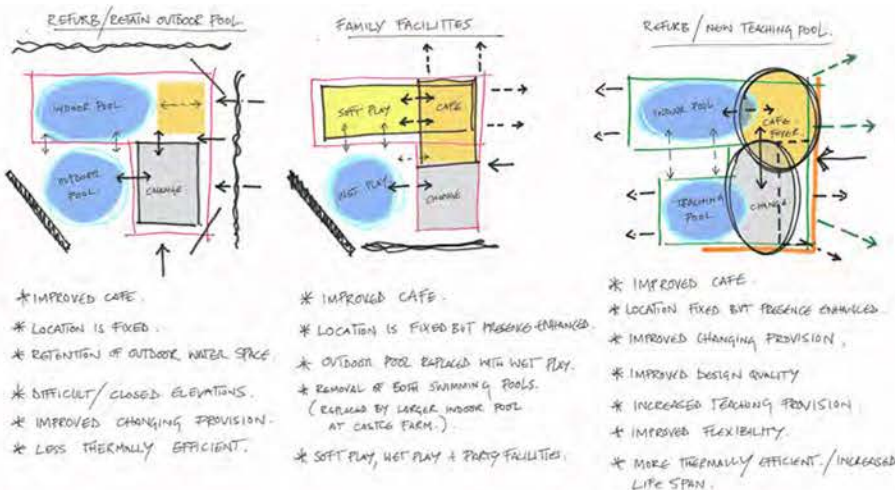 REFURB/RETAIN OUTDOOR POOL.
INDOOR POOL
OUTDOOR
POOL.
CHANGE
* IMPROVED CAFE.
* LOCATION IS FIXED.
* RETENTION OF OUTDOOR WATER SPACE.
* DIFFICULT/CLOSED ELEVATIONS.
* IMPROVED CHANGING PROVISION.
* LESS THERMALLY EFFICIENT.
FAMILY FACILITIES
SOFT PLAY
CAFE
WET PLAY
CHANGE
* IMPROVED CAFE.
* LOCATION IS FIXED BUT PRESENCE ENHANCED.
* OUTDOOR POOL REPLACED WITH WET PLAY.
* REMOVAL OF BOTH SWIMMING POOLS.
(REPLACED BY LARGER INDOOR POOL
AT CASTLE FARM.)
* SOFT PLAY, WET PLAY + PARTY FACILITIES.
REFURB/NEW TEACHING POOL.
INDOOR POOL
CAFE -
FOYER.
TEACHING
POOL
CHANGE
* IMPROVED CAFE.
* LOCATION FIXED BUT PRESENCE ENHANCED.
* IMPROVED CHANGING PROVISION.
* IMPROVED DESIGN QUALITY
* INCREASED TEACHING PROVISION.
* IMPROVED FLEXIBILITY.
* MORE THERMALLY EFFICIENT./INCREASED
LIFE SPAN.